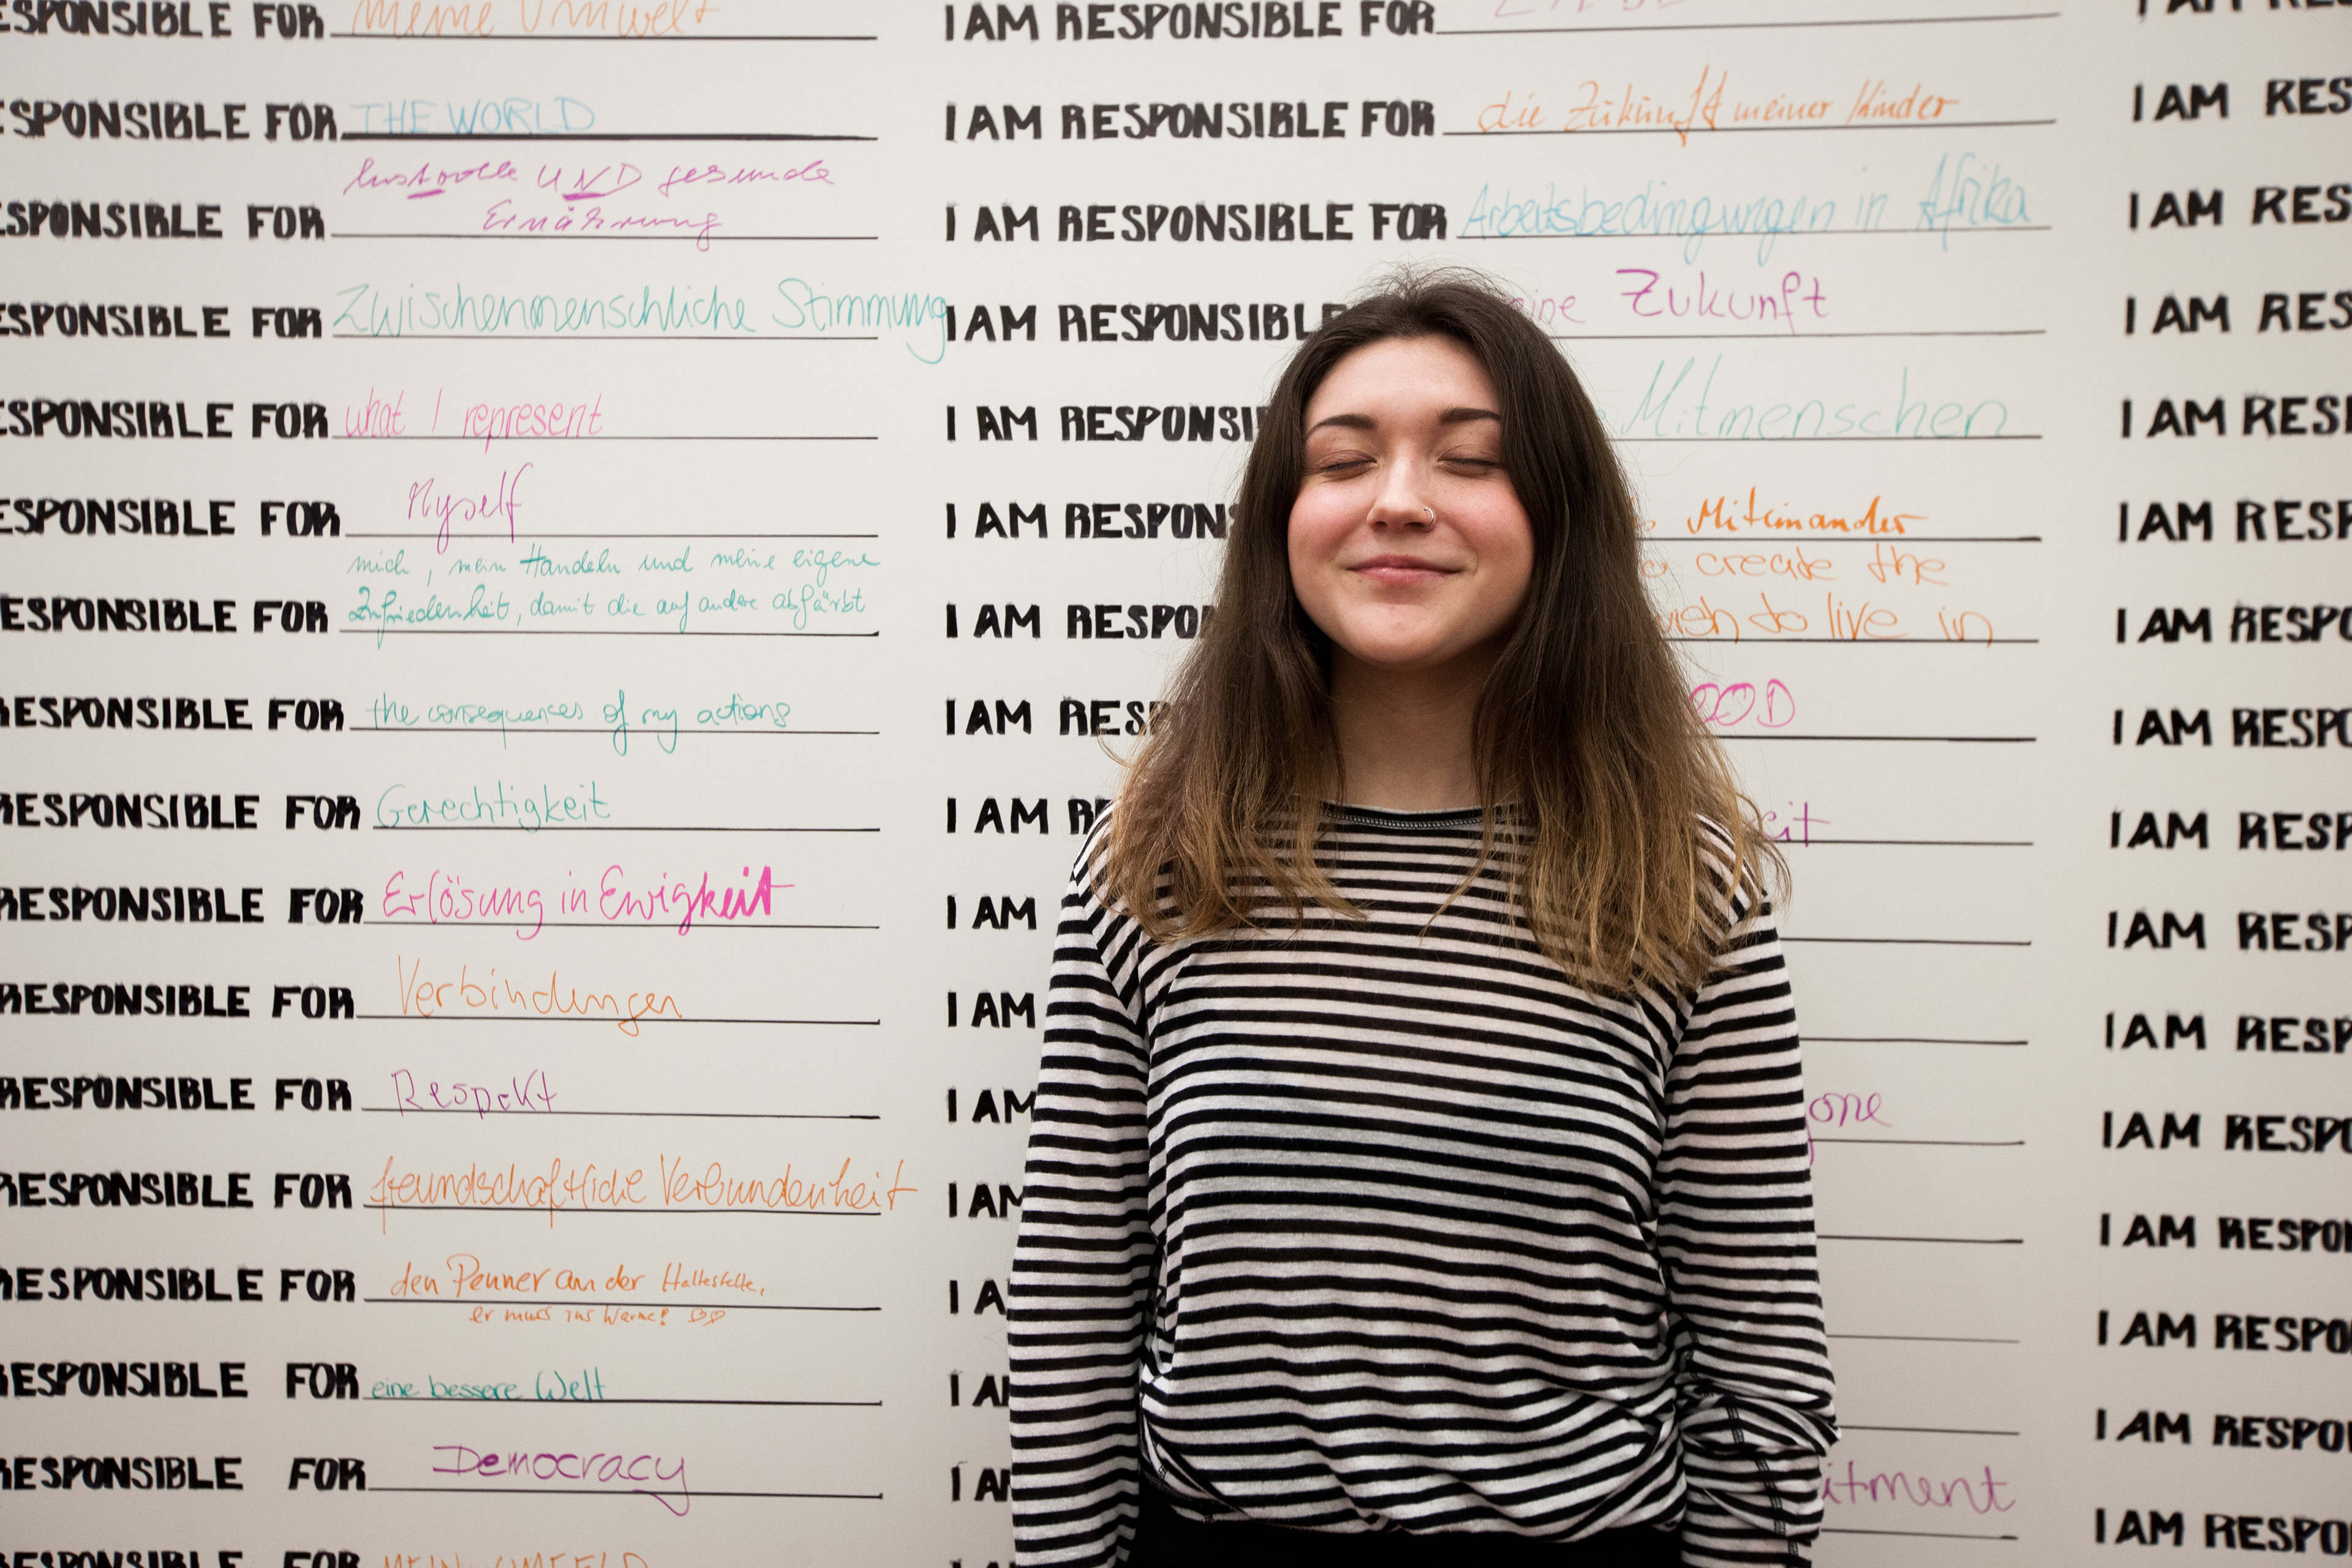 ESPONSIBLE FOR meine Umwelt
ESPONSIBLE FOR THE WORLD
lustvolle UND gesunde
ESPONSIBLE FOR Ernährung
ESPONSIBLE FOR Zwischenmenschliche Stimmung
ESPONSIBLE FOR what I represent
ESPONSIBLE FOR Myself
mich, mein Handeln und meine eigene
ESPONSIBLE FOR Zufriedenheit, damit die auf andere abfärbt
RESPONSIBLE FOR the consequences of my actions
RESPONSIBLE FOR Gerechtigkeit
RESPONSIBLE FOR Erlösung in Ewigkeit
RESPONSIBLE FOR Verbindungen
RESPONSIBLE FOR Respekt
RESPONSIBLE FOR freundschaftliche Verbundenheit
RESPONSIBLE FOR den Penner an der Haltestelle,
er muss ins Warme!
RESPONSIBLE FOR eine bessere Welt
RESPONSIBLE FOR Democracy
RESPONSIBLE FOR MEIN UMFELD
I AM RESPONSIBLE FOR
I AM RESPONSIBLE FOR die Zukunft meiner Kinder
I AM RESPONSIBLE FOR Arbeitsbedingungen in Afrika
I AM RESPONSIBLE eine Zukunft
I AM RESPONSI Mitmenschen
I AM RESPON Miteinander
create the
I AM RESPO wish to live in
I AM RESP OOD
I AM R eit
I AM
I AM
I AM one
I AM
I A
I AM
I AM itment
I A
I AM RES
I AM RES
I AM RES
I AM RES
I AM RESP
I AM RESP
I AM RESPO
I AM RESPO
I AM RESP
I AM RESP
I AM RESP
I AM RESPO
I AM RESPON
I AM RESPO
I AM RESPO
I AM RESPO